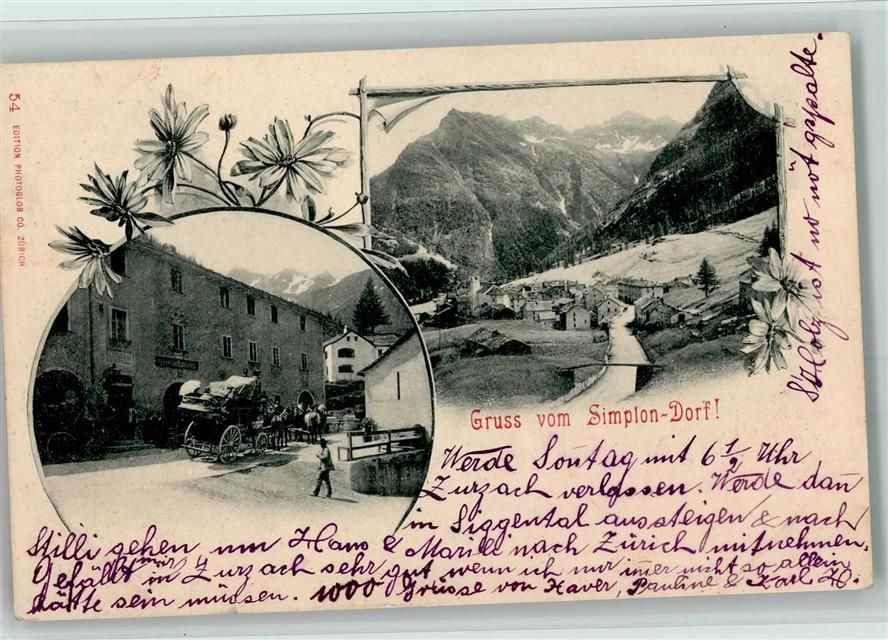 54 EDITION PHOTOGLOB CO. ZÜRICH
Gruss vom Simplon-Dorf!
Werde Sontag mit 6 1/2 Uhr
Zurzach verlassen. Werde dan̄
in Siggental aussteigen & nach
Stilli gehen um Hans & Marili nach Zürich mitnehmen.
Gefällt mir in Zürzach sehr gut wenn ich nur im̄er nicht so allein
hätte sein müssen. 1000 Grüsse von Xaver, Pauline & Karl H.
s'Holz ist no nöt gspalte.